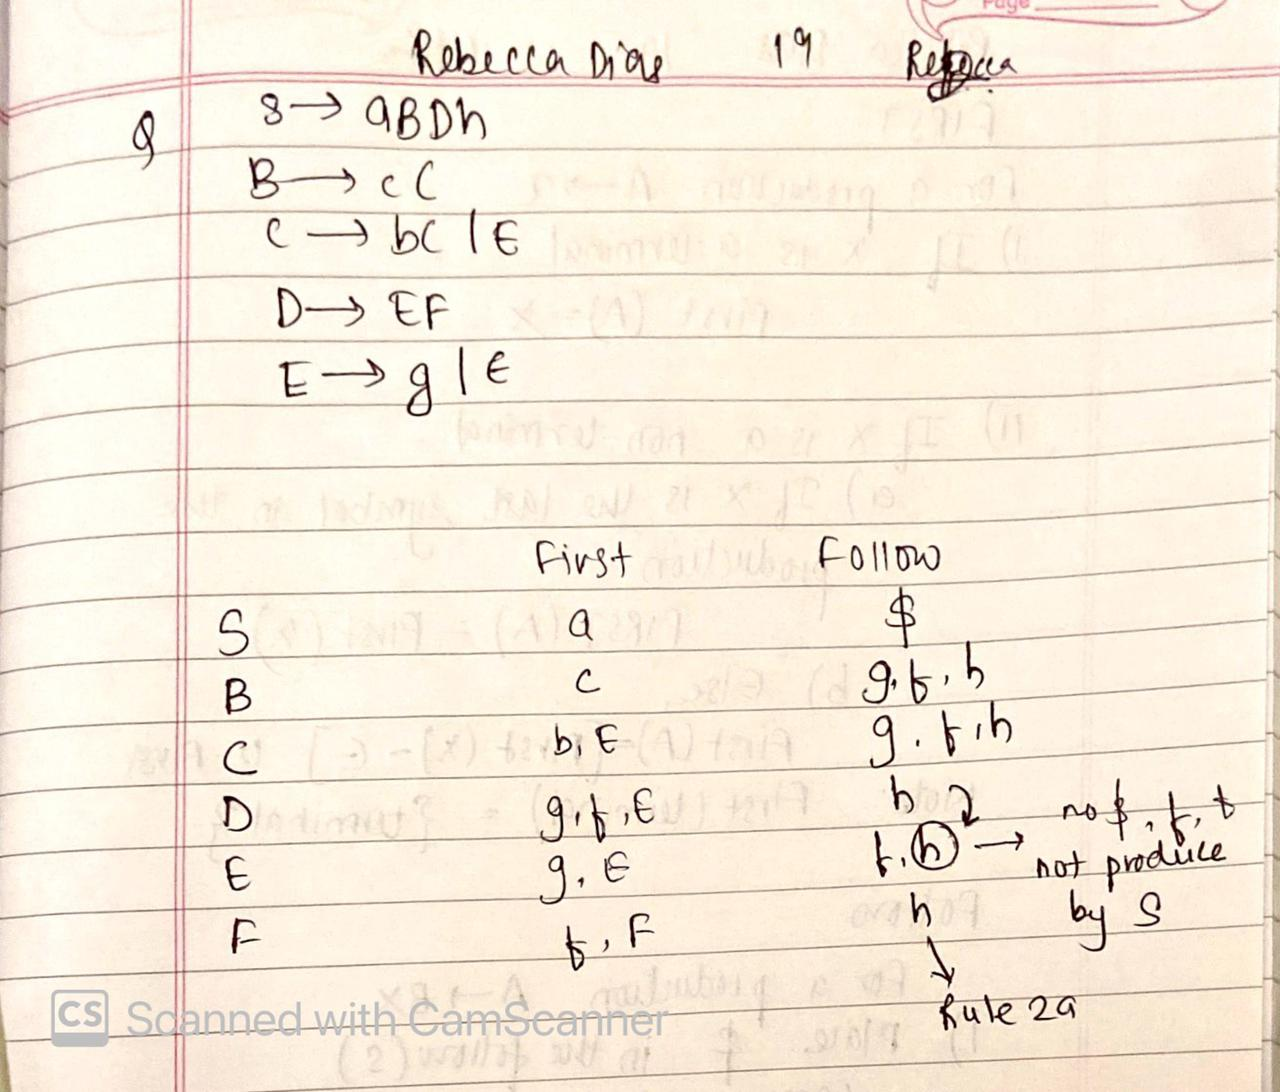 Page
Rebecca Dias 19 Rebecca
Q S → aBDh
B → cC
C → bC | ϵ
D → EF
E → g | ϵ
First Follow
S a $
B c g, f, h
C b, ϵ g, f, h
D g, f, ϵ h
E g, ϵ f, h → no $, f, t
not produce
F f, F h by S
Rule 2a
CS Scanned with CamScanner